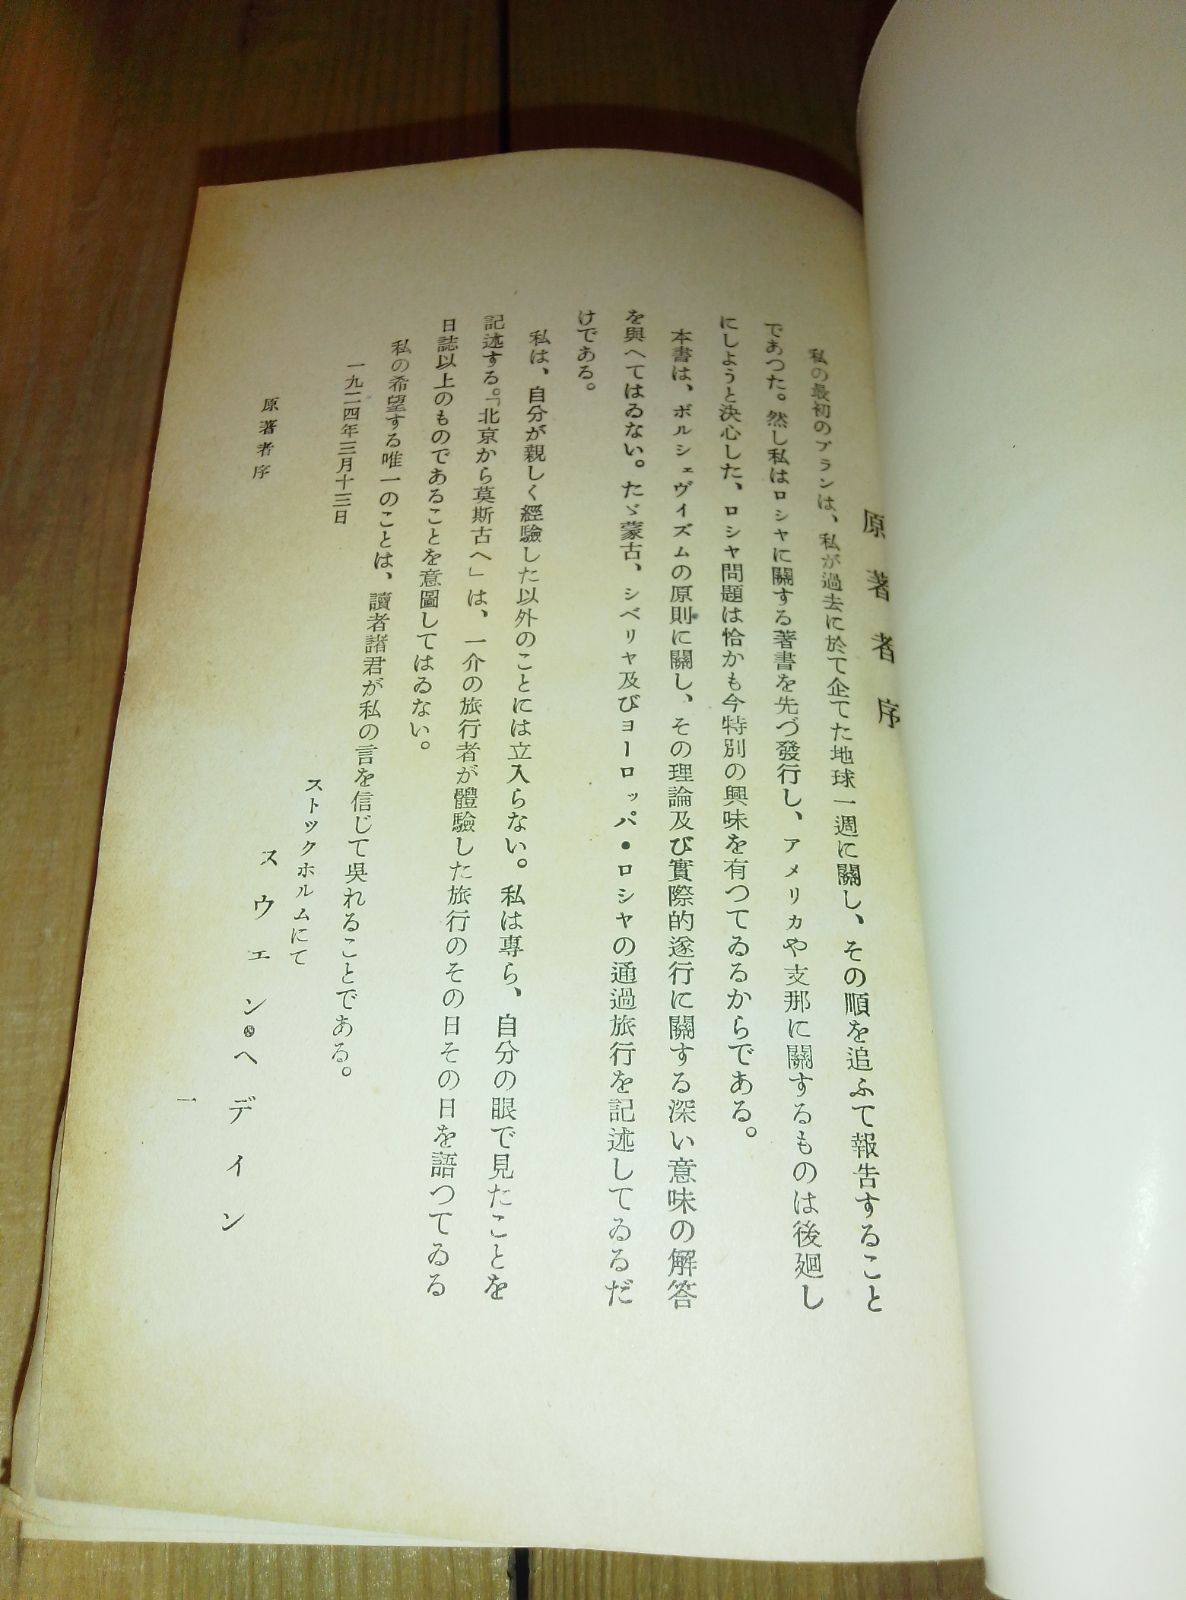 原著者序
私の最初のプランは、私が過去に於て企てた地球一週に關し、その順を追ふて報告すること
であつた。然し私はロシヤに關する著書を先づ發行し、アメリカや支那に關するものは後廻し
にしようと決心した、ロシヤ問題は恰かも今特別の興味を有つてゐるからである。
本書は、ボルシェヴイズムの原則に關し、その理論及び實際的遂行に關する深い意味の解答
を與へてはゐない。たゞ蒙古、シベリヤ及びヨーロッパ・ロシヤの通過旅行を記述してゐるだ
けである。
私は、自分が親しく經驗した以外のことには立入らない。私は専ら、自分の眼で見たことを
記述する。「北京から莫斯古へ」は、一介の旅行者が體驗した旅行のその日その日を語つてゐる
日誌以上のものであることを意圖してはゐない。
私の希望する唯一のことは、讀者諸君が私の言を信じて呉れることである。
一九二四年三月十三日
ストックホルムにて
スウエン・ヘデイン
原著者序
一